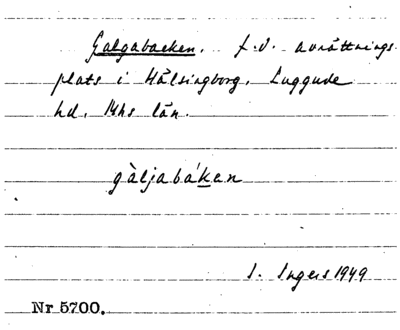 Galgabacken, f.d. avrättnings-
plats i Hälsingborg, Luggude
hd, Mhs län.
gàljabák̲en
I. Ingers 1949
Nr 5700.